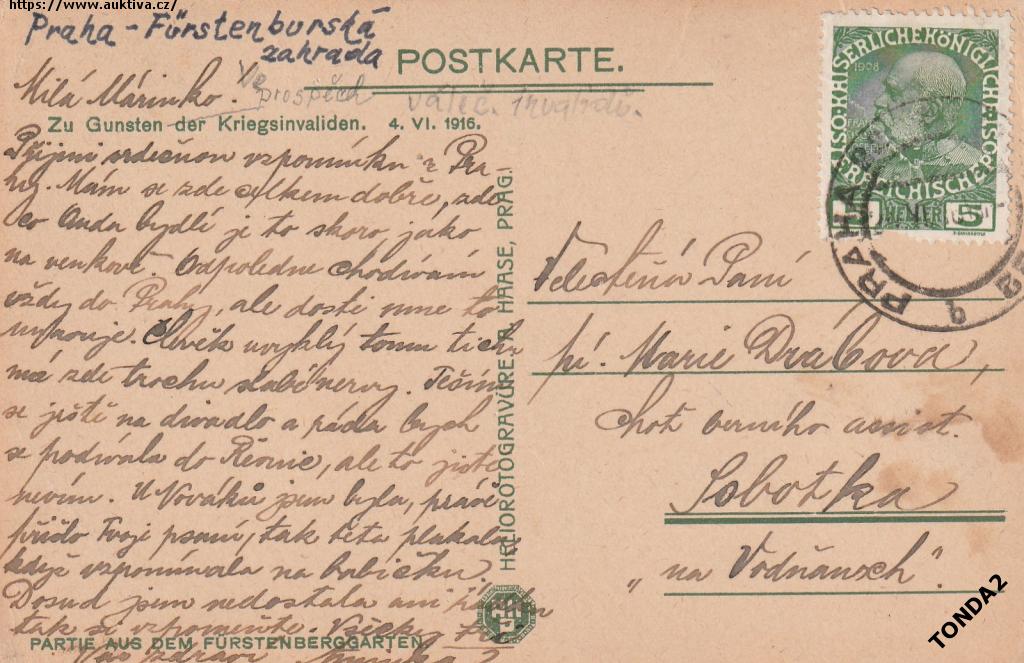 https://www.auktiva.cz/
Praha - Fürstenburská
zahrada
POSTKARTE.
Milá Márinko.
Ve prospěch váleč. invalidů.
Zu Gunsten der Kriegsinvaliden. 4. VI. 1916.
Přijmi srdečnou vzpomínku z Pra-
hy. Mám se zde celkem dobře, zde
co Anda bydlí je to skoro jako
na venkově. Odpoledne chodívám
vždy do Prahy, ale dosti mne to
unavuje. Člověk uvyklý tomu tich.
má zde trochu slabé nervy. Těším
se ještě na divadlo a ráda bych
se podívala do Řevnic, ale to jistě
nevím. U Nováků jsem byla, právě
přišlo Tvoje psaní, tak teta plakala
když vzpomínala na babičku.
Dosud jsem nedostala ani
tak si vzpomeňte.
Vás zdraví
PARTIE AUS DEM FÜRSTENBERGGARTEN
HELIOROTOGRAVÜRE A. HAASE, PRAG.
1908
5
PRAHA
Velectěná Paní
pí. Marie Drábová,
choť berního asist.
Sobotka
"na Vodňansch".
TONDA2